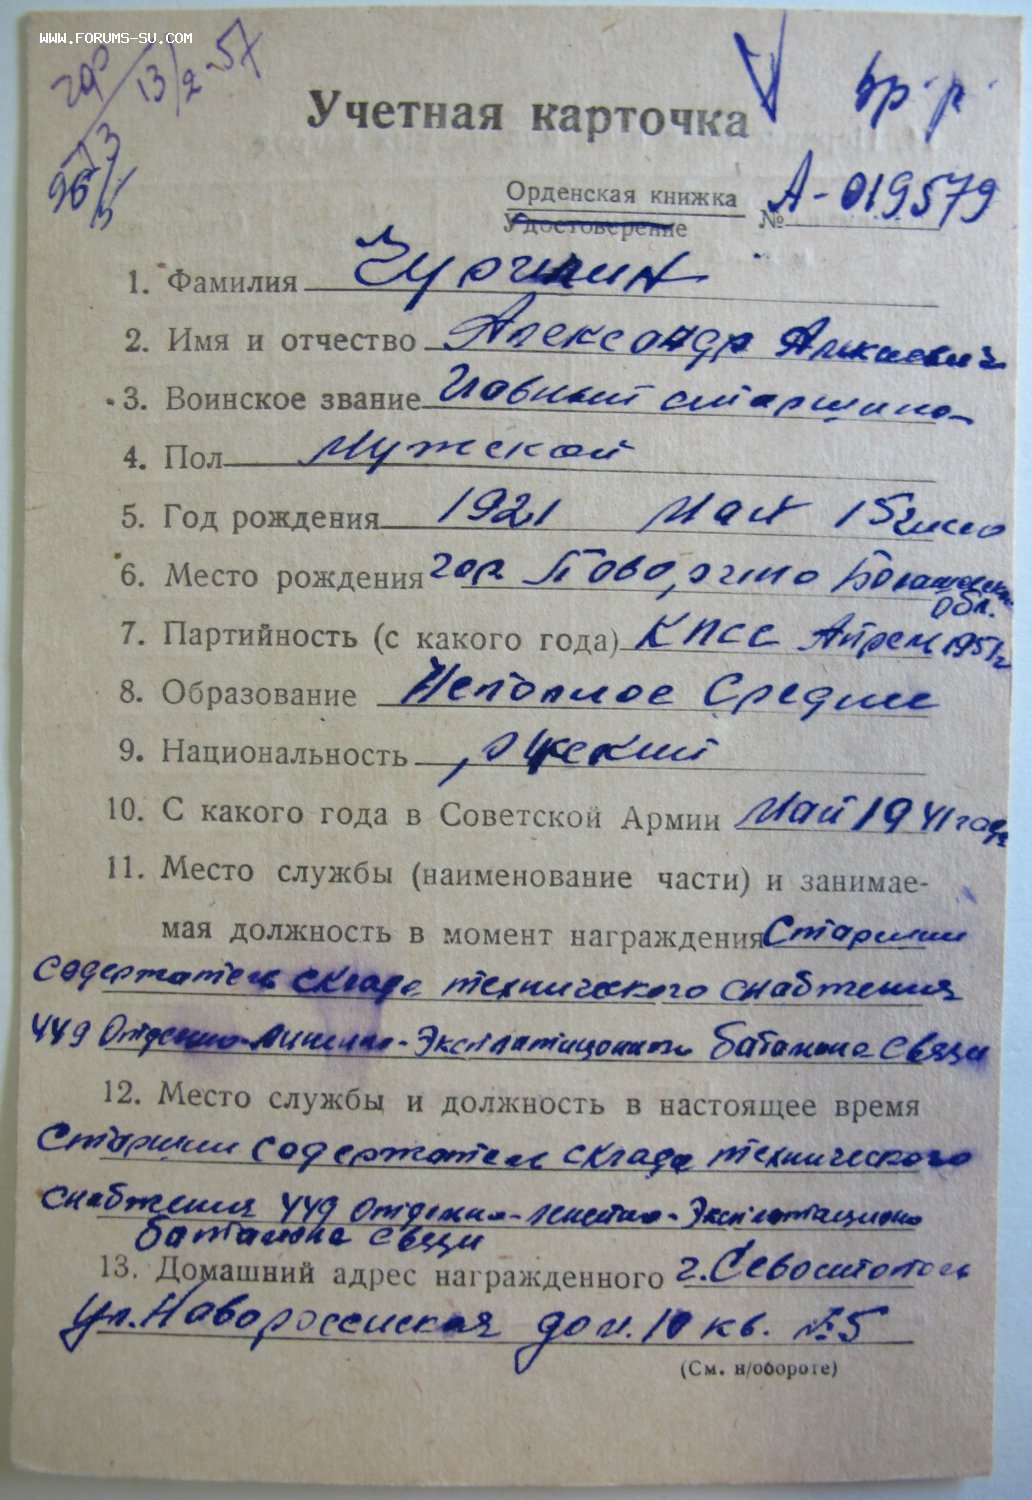 www.forums-su.com
13/2-57
Учетная карточка
Орденская книжка
Удостоверение № А-019579
1. Фамилия
2. Имя и отчество Александр Алексеевич
3. Воинское звание Главный старшина
4. Пол Мужской
5. Год рождения 1921 Мая 15 число
6. Место рождения гор Поворино Балашовской
обл.
7. Партийность (с какого года) КПСС Апрель 1951г
8. Образование Неполное Средние
9. Национальность русский
10. С какого года в Советской Армии Май 1941 года
11. Место службы (наименование части) и занимае-
мая должность в момент награждения Старший
содержатель склада технического снабжения
449 Отдельно-Линейно-Эксплатационного батальона связи
12. Место службы и должность в настоящее время
Старший содержатель склада технического
снабжения 449 отдельно-линейно-Эксплотационо
батальона связи
13. Домашний адрес награжденного г. Севостополь
ул. Новороссийская дом. 10 кв. №5
(См. н/обороте)